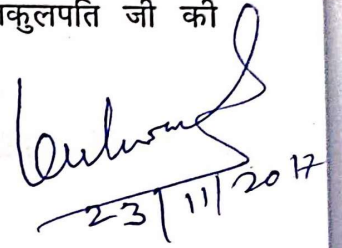 कुलपति जी की
23/11/2017